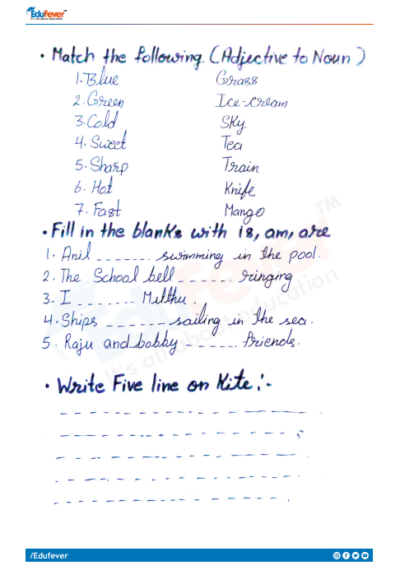 EduFever
• Match the following (Adjective to Noun)
1. Blue Grass
2. Green Ice-cream
3. Cold Sky
4. Sweet Tea
5. Sharp Train
6. Hot Knife
7. Fast Mango
• Fill in the blanks with is, am, are
1. Anil ------- swimming in the pool.
2. The School bell ------ ringing
3. I ------- Mitthu.
4. Ships ------- sailing in the sea.
5. Raju and bobby ------ friends.
• Write Five line on Kite :-
/Edufever